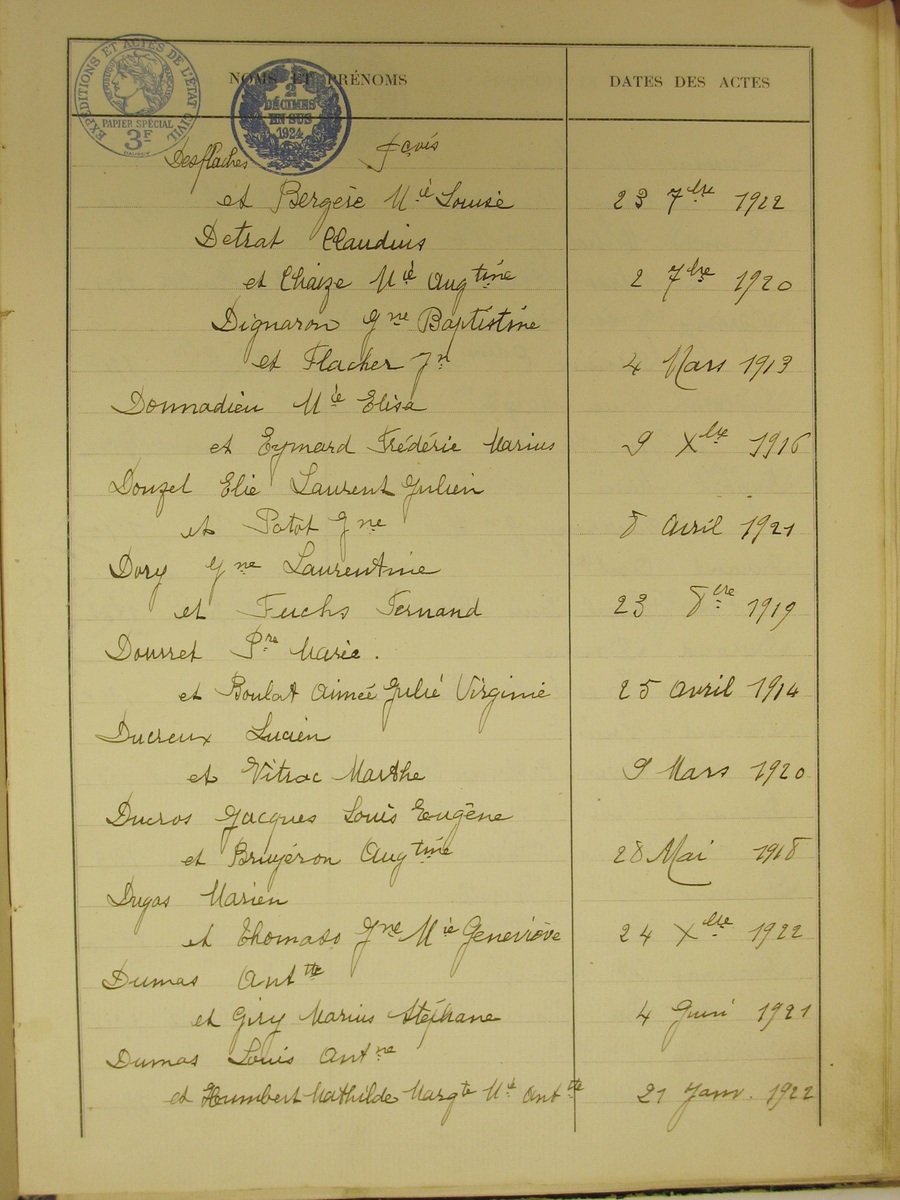 NOMS ET PRÉNOMS DATES DES ACTES
EXPÉDITIONS ET ACTES DE L'ÉTAT CIVIL
PAPIER SPÉCIAL
3F
2
DÉCIMES
EN SUS
1924
Desflaches fçois
et Bergère Mie Louise 23 7bre 1922
Detrat Claudius
et Chaize Mie Augtine 2 7bre 1920
Dignaron Jne Baptistine
et Flacher Jn 4 Mars 1913
Donnadieu Mie Elisa
et Eymard Frédéric Marius 9 Xbre 1916
Douzel Elie Laurent Julien
et Potot Jne 8 Avril 1921
Dory Jne Laurentine
et Fuchs Fernand 23 8bre 1919
Dourret Pre Marie.
et Boulat Aimée Julie Virginie 25 avril 1914
Ducreux Lucien
et Vitrac Marthe 9 Mars 1920
Ducros Jacques Louis Eugène
et Bruyéron Augtine 28 Mai 1918
Dugas Marien
et Thomass Jne Mie Geneviève 24 Xbre 1922
Dumas Anttte
et Giry Marius Stéphane 4 Juin 1921
Dumas Louis Antne
et Humbert Mathilde Margte Mie Anttte 21 Janv. 1922